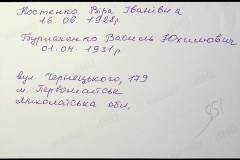 Костенко Віра Іванівна
16.06.1928р
Бурлаченко Василь Юхимович
01.04.1931р
вул. Чернецького, 179
м. Первомайськ
Миколаївська обл.